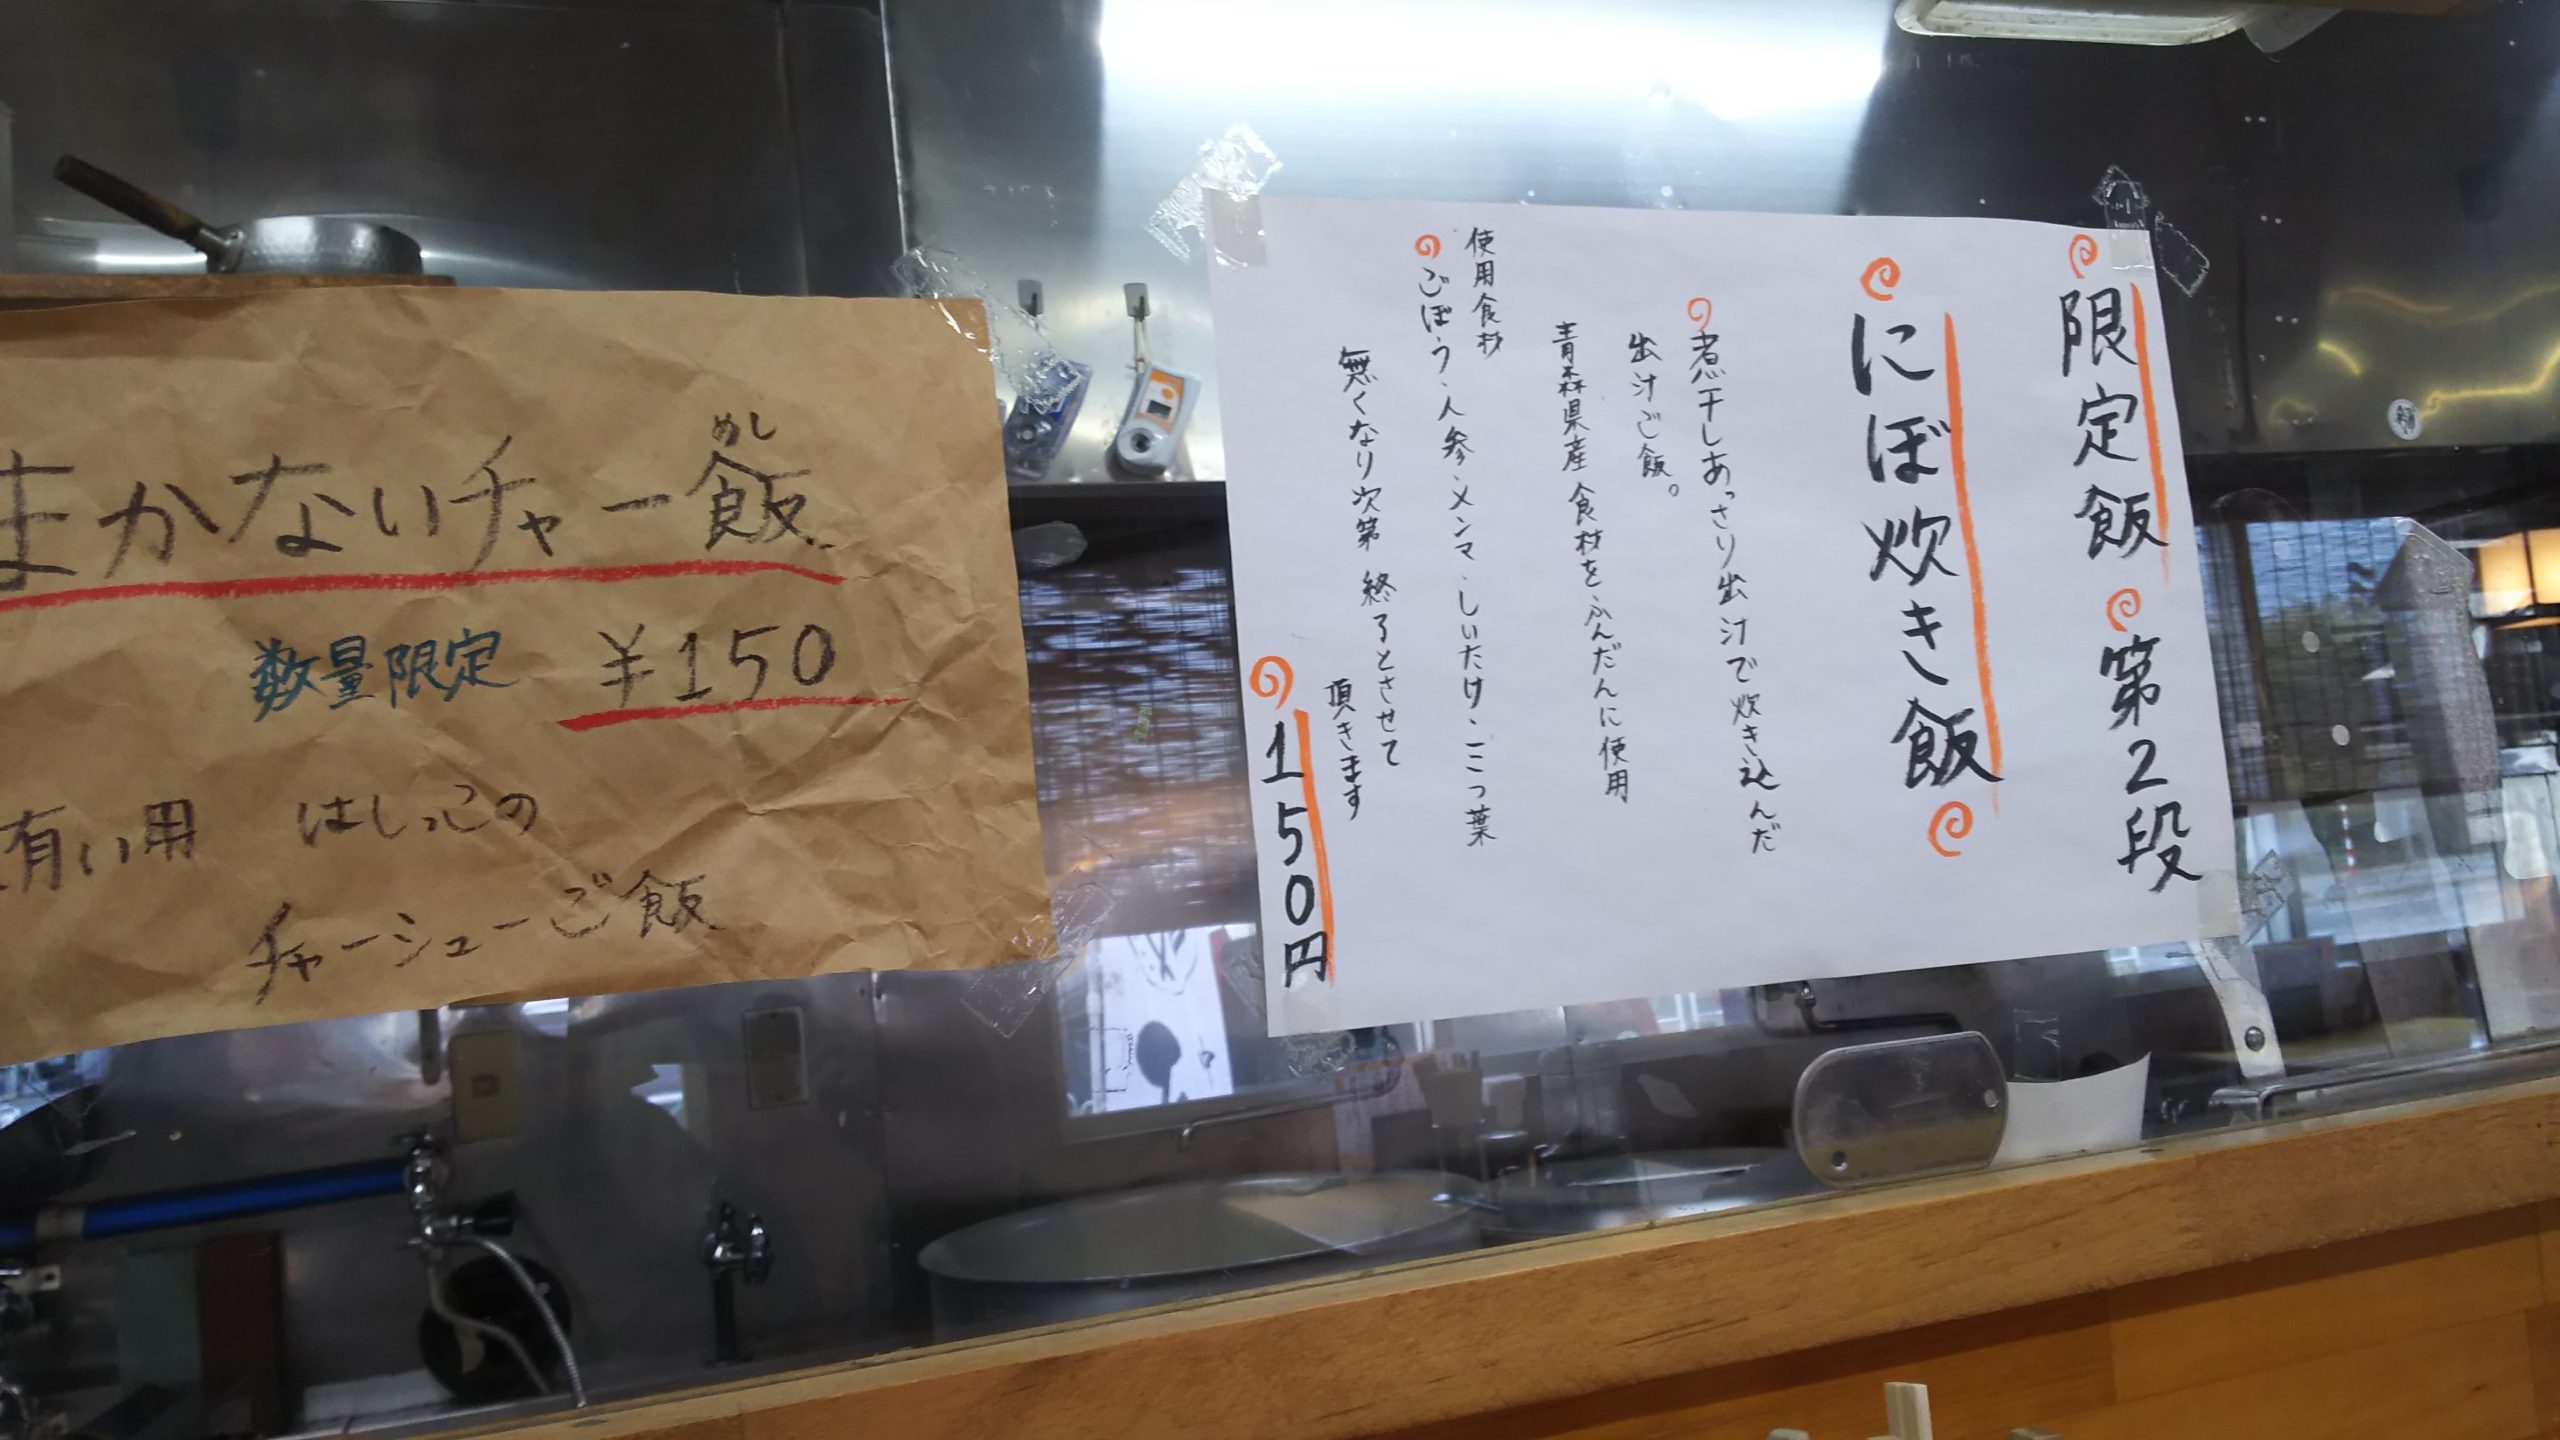 まかないチャー飯
めし
数量限定 ¥150
有い用 はしっこの
チャーシューご飯
限定飯 第2段
にぼ炊き飯
煮干しあっさり出汁で炊き込んだ
出汁ご飯。
青森県産食材をふんだんに使用
使用食材
ごぼう・人参・メンマ・しいたけ・三つ葉
無くなり次第終了とさせて
頂きます
150円